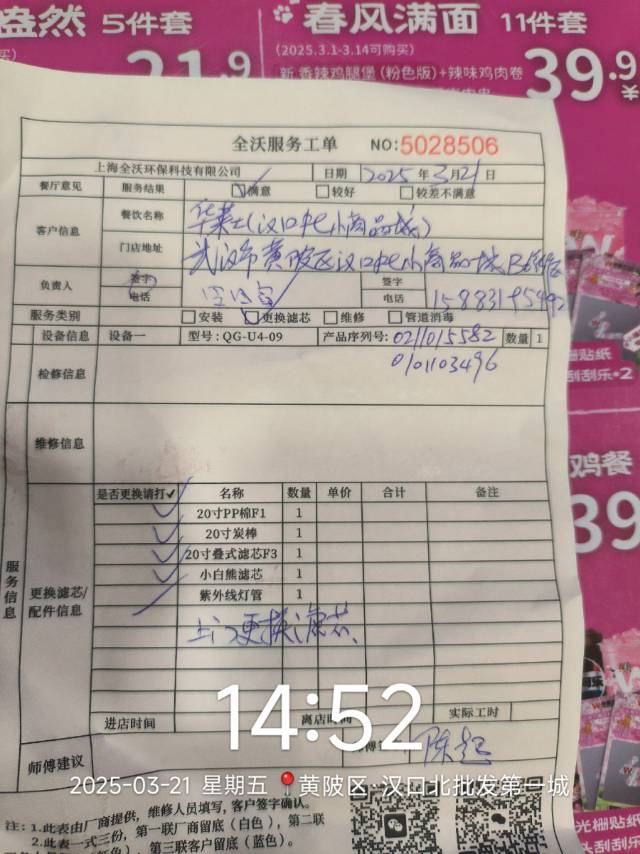 盎然 5件套
21.9
春风满面 11件套
(2025.3.1-3.14可购买)
新.香辣鸡腿堡(粉色版)+辣味鸡肉卷
39.9
¥
全沃服务工单 NO:5028506
上海全沃环保科技有限公司 日期 2025年3月21日
餐厅意见 服务结果 满意 较好 较差不满意
客户信息 餐饮名称 华莱士(汉口北小商品城)
门店地址 武汉市黄陂区汉口北小商品城
负责人 签字 签字
电话 电话
服务类别 安装 更换滤芯 维修 管道消毒
设备信息 设备一 型号:QG-U4-09 产品序列号: 0211015582 数量 1
0101103496
检修信息
维修信息
服务信息
更换滤芯/配件信息
是否更换请打✓ 名称 数量 单价 合计 备注
✓ 20寸PP棉F1 1
✓ 20寸炭棒 1
✓ 20寸叠式滤芯F3 1
✓ 小白熊滤芯 1
紫外线灯管 1
上门更换滤芯、
进店时间 离店时间 实际工时
14:52
师傅建议 陈超
2025-03-21 星期五 黄陂区·汉口北批发第一城
注:1.此表由厂商提供,维修人员填写,客户签字确认。
2.此表一式三份,第一联厂商留底(白色),第二联
第三联客户留底(蓝色)。
栅贴纸
刮刮乐•2
鸡餐
39
光栅贴纸
刮刮乐